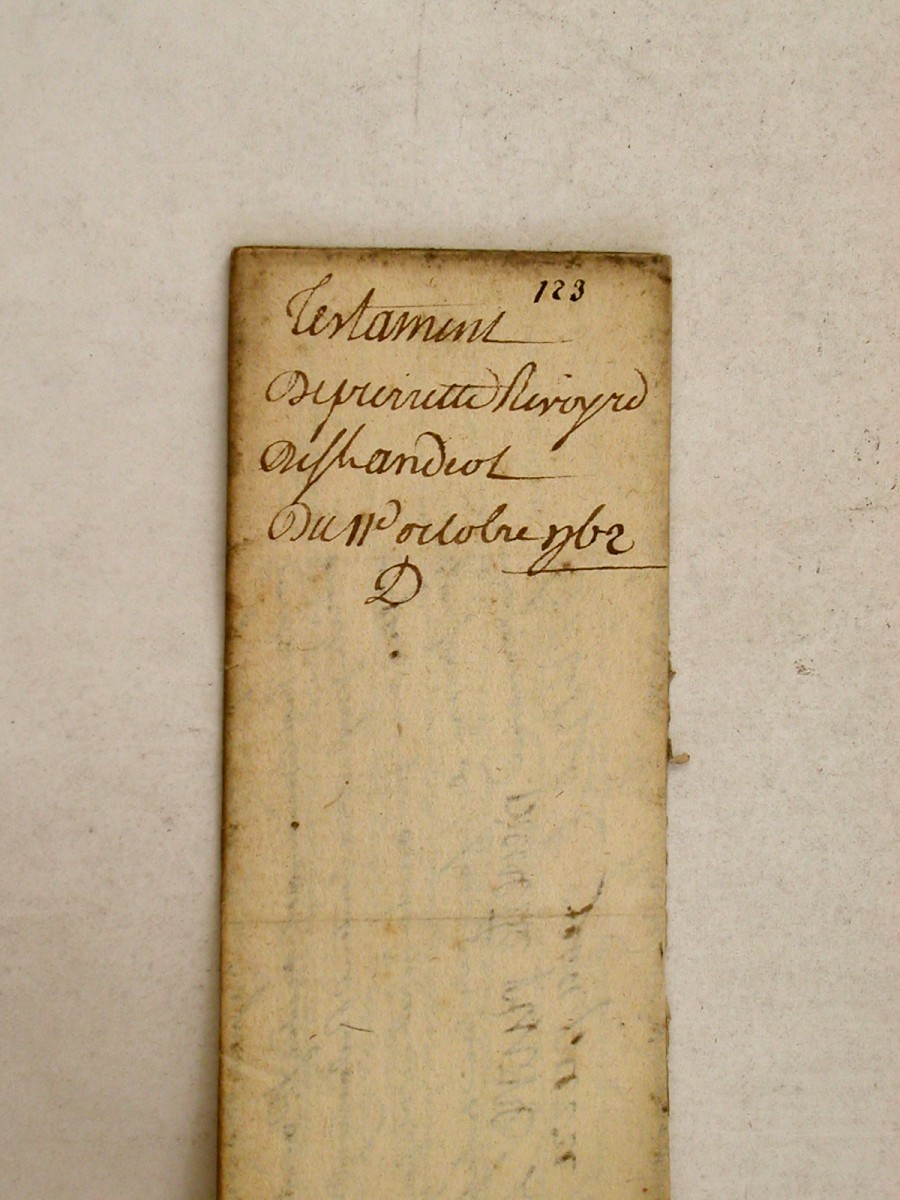 123
Testament
De pierrette Rivoyre
De
Du 11e octobre 1762
D